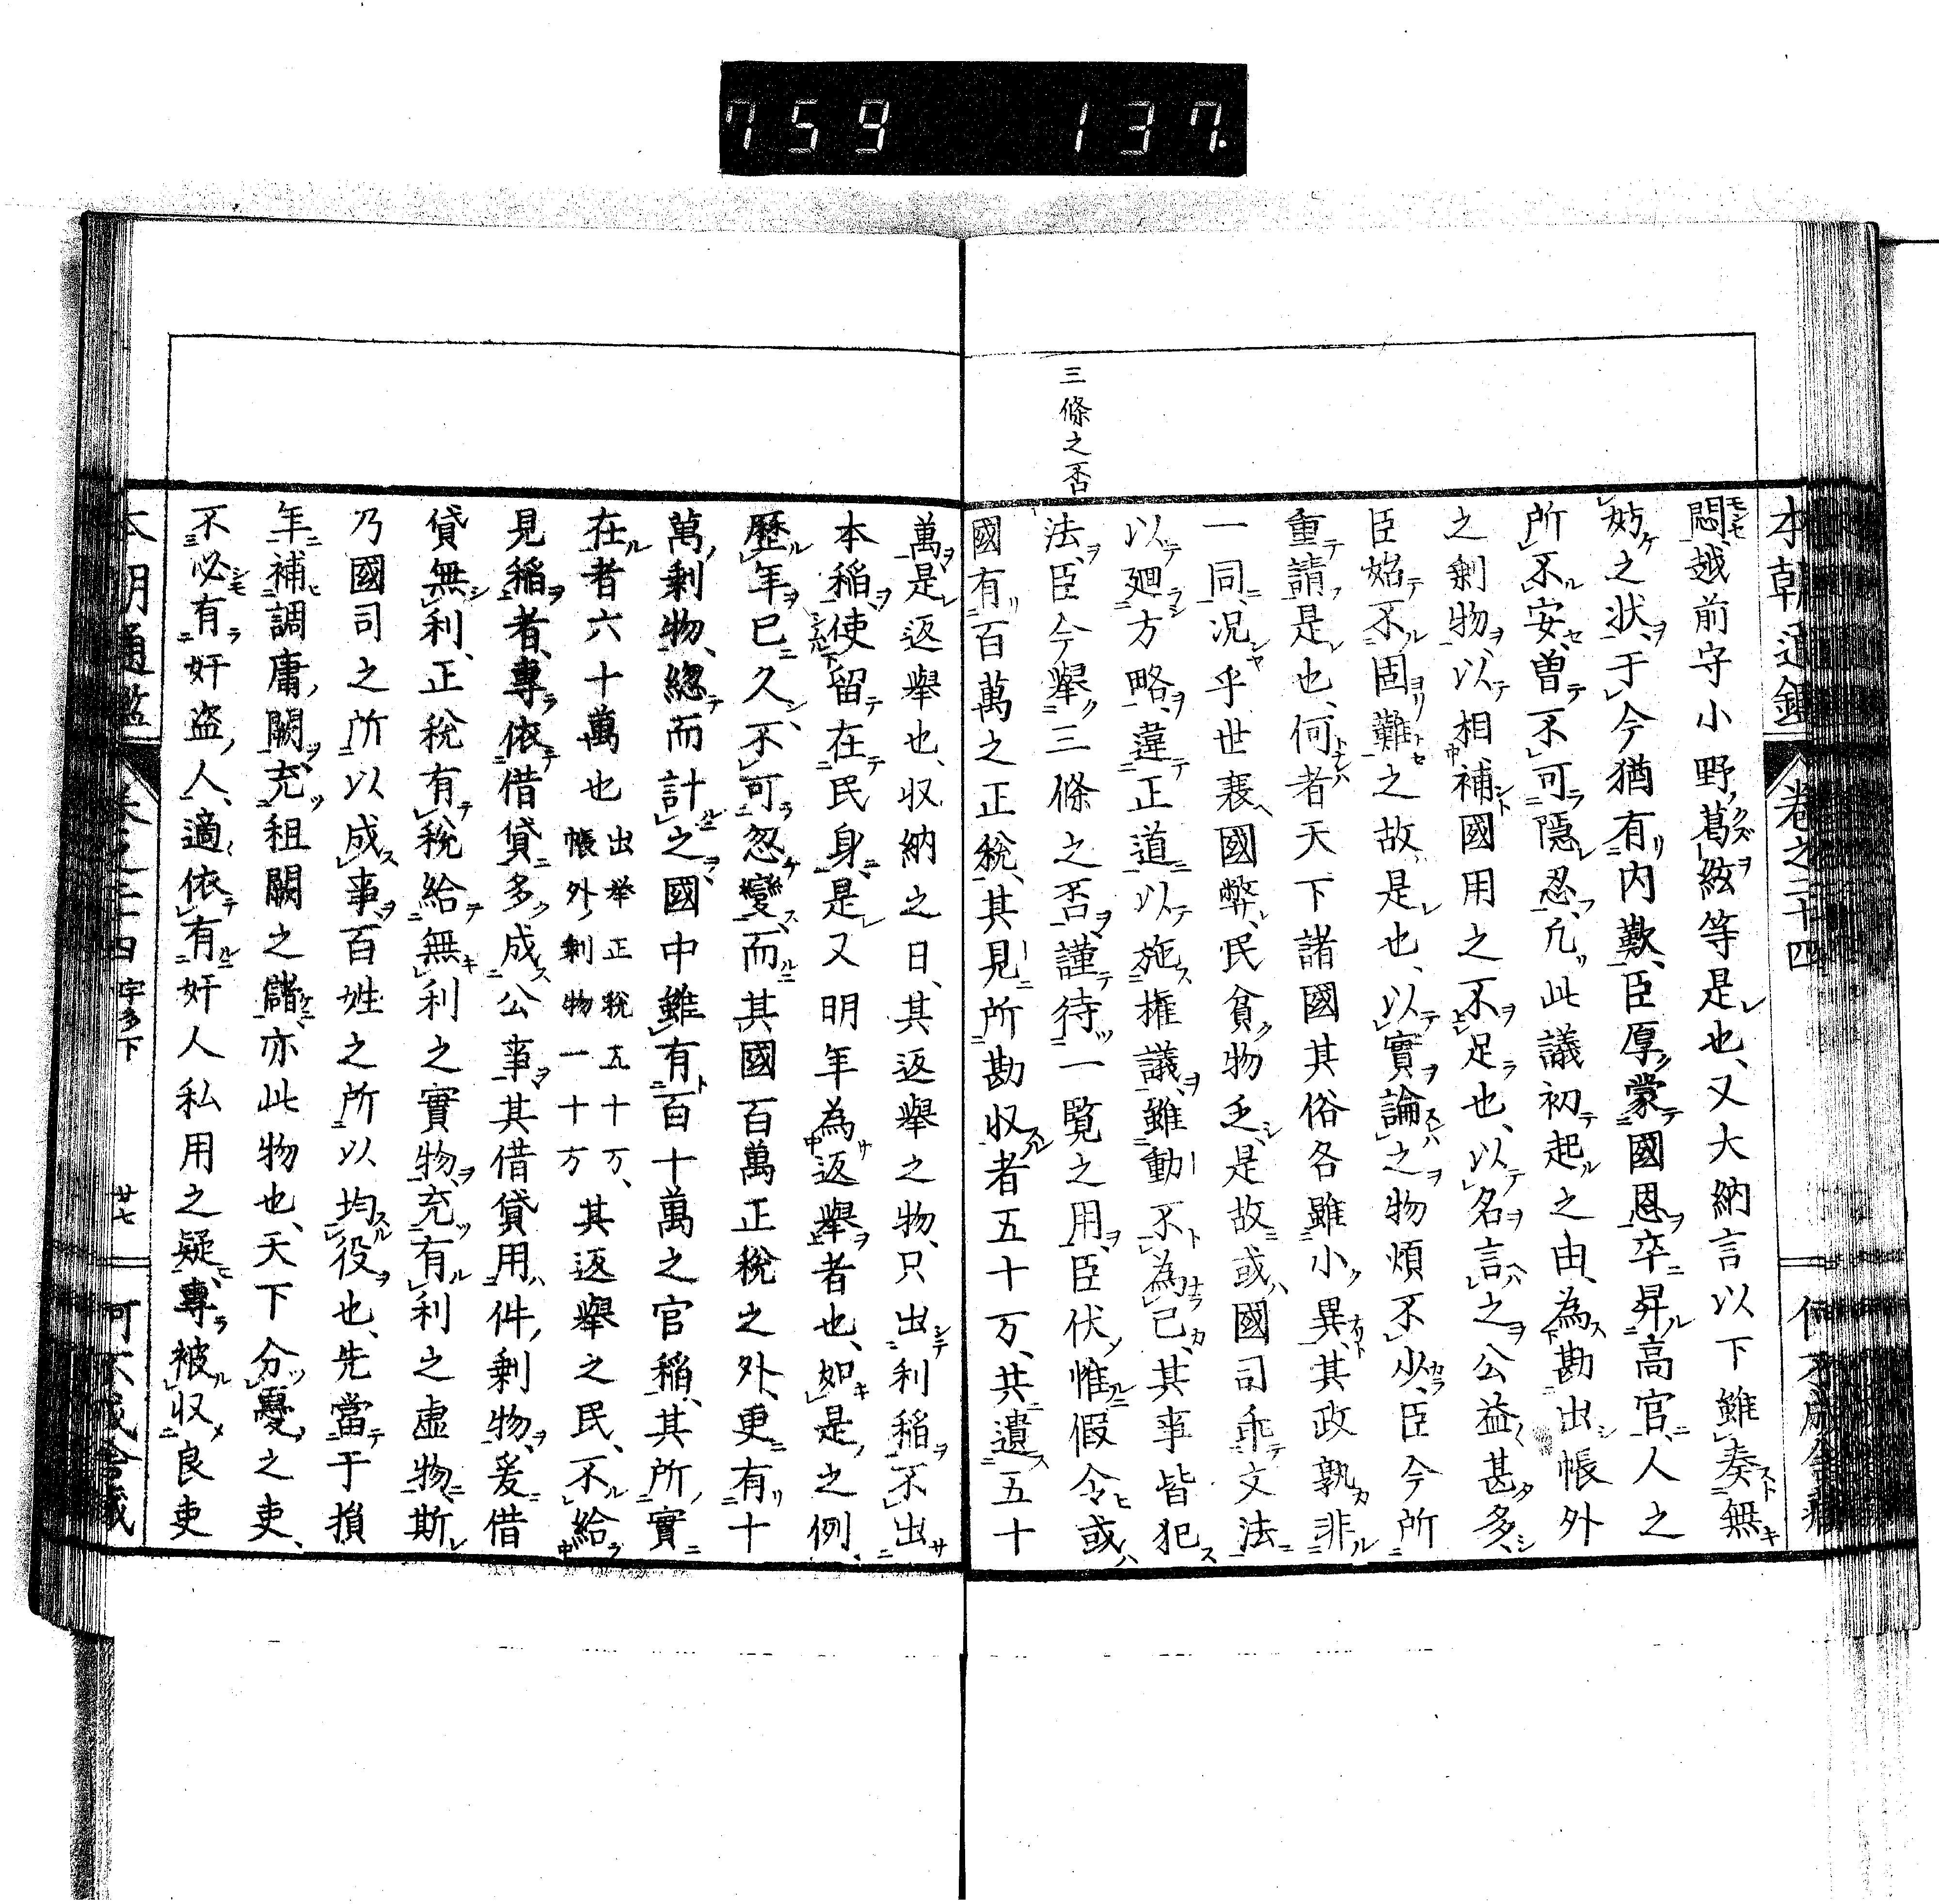 759 137.
本朝通鑑 卷之二十四
三條之否
悶越前守小野葛絃等是也、又大納言以下雖奏無
妨之狀、于今猶有內歎、臣厚蒙國恩、卒昇高官、人之
所不安、曽不可隱忍、凢此議初起之由、為勘出帳外
之剰物、以相補國用之不足也、以名言之公益甚多、
臣始不固難之故是也、以實論之物煩不少、臣今所
重請是也、何者天下諸國其俗各雖小異、其政孰非
一同、况乎世衰國弊、民貧物乏、是故或國司乖文法
以廻方略、違正道以施権議、雖動不為己、其事皆犯
法、臣今舉三條之否、謹待一覧之用、臣伏惟假令或
國有百萬之正税、其見所勘収者五十万、共遺五十
萬是返舉也、収納之日、其返舉之物、只出利稲不出
本稲、使留在民身、是又明年為返舉者也、如是之例、
歷年已久、不可忽變、而其國百萬正税之外、更有十
萬剰物、緫而計之、國中雖有百十萬之官稲、其所實
在者六十萬也 出舉正税五十万、帳外剰物一十万 其返舉之民、不給
見稲者、專依借貸多成公事、其借貸用件剰物、爰借
貸無利、正税有税、給無利之實物、充有利之虛物、斯
乃國司之所以成事、百姓之所以均役也、先當于損
年補調庸闕、充租闕之儲、亦此物也、天下分憂之吏、
不必有奸盗人、適依有奸人私用之疑、專被収良吏
本朝通鑑 卷之二十四 宇多下 廿七